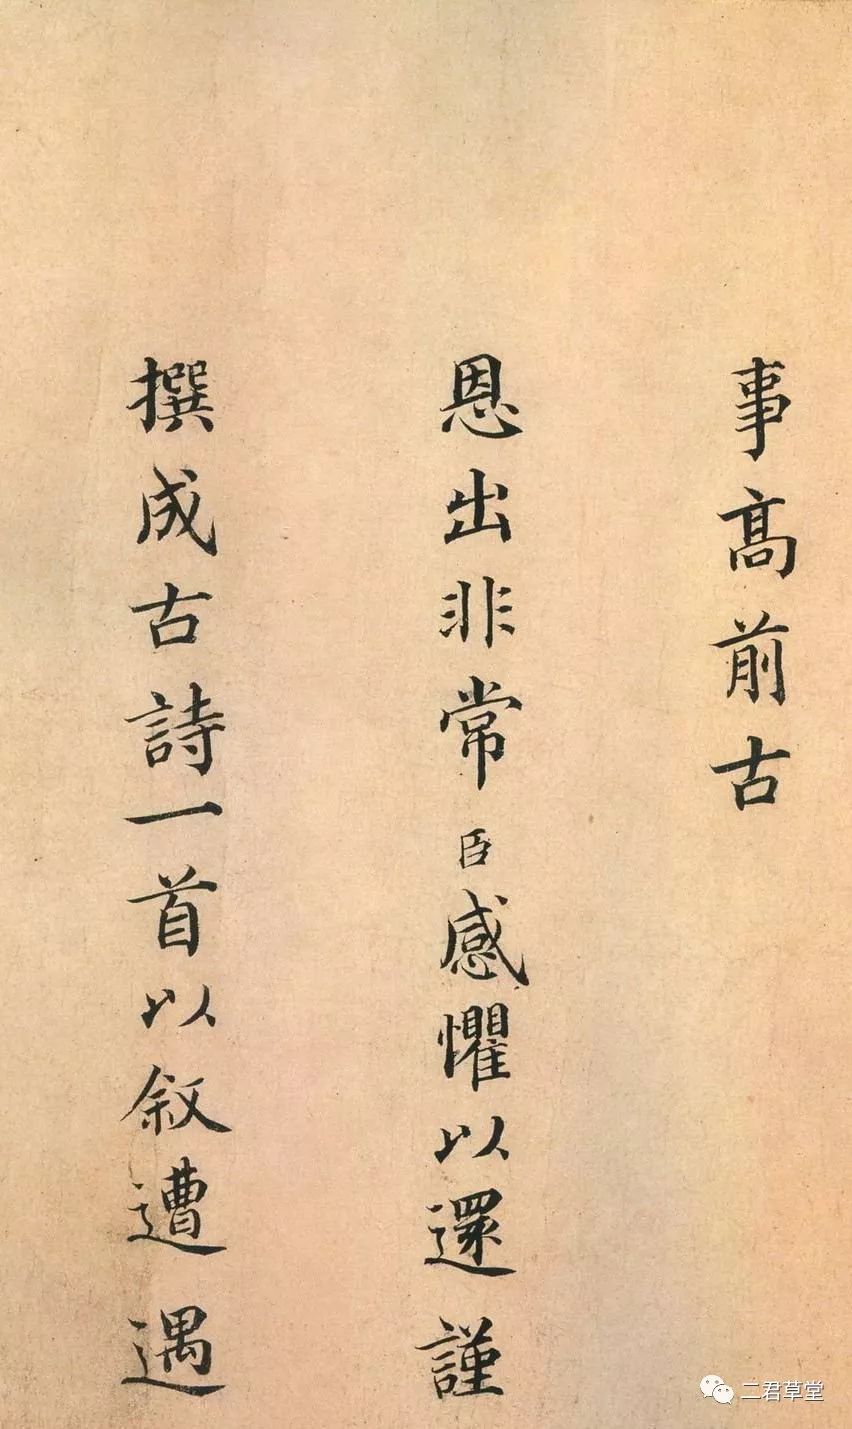 事髙前古
恩出非常臣感懼以還謹
撰成古詩一首以敘遭遇
二君草堂